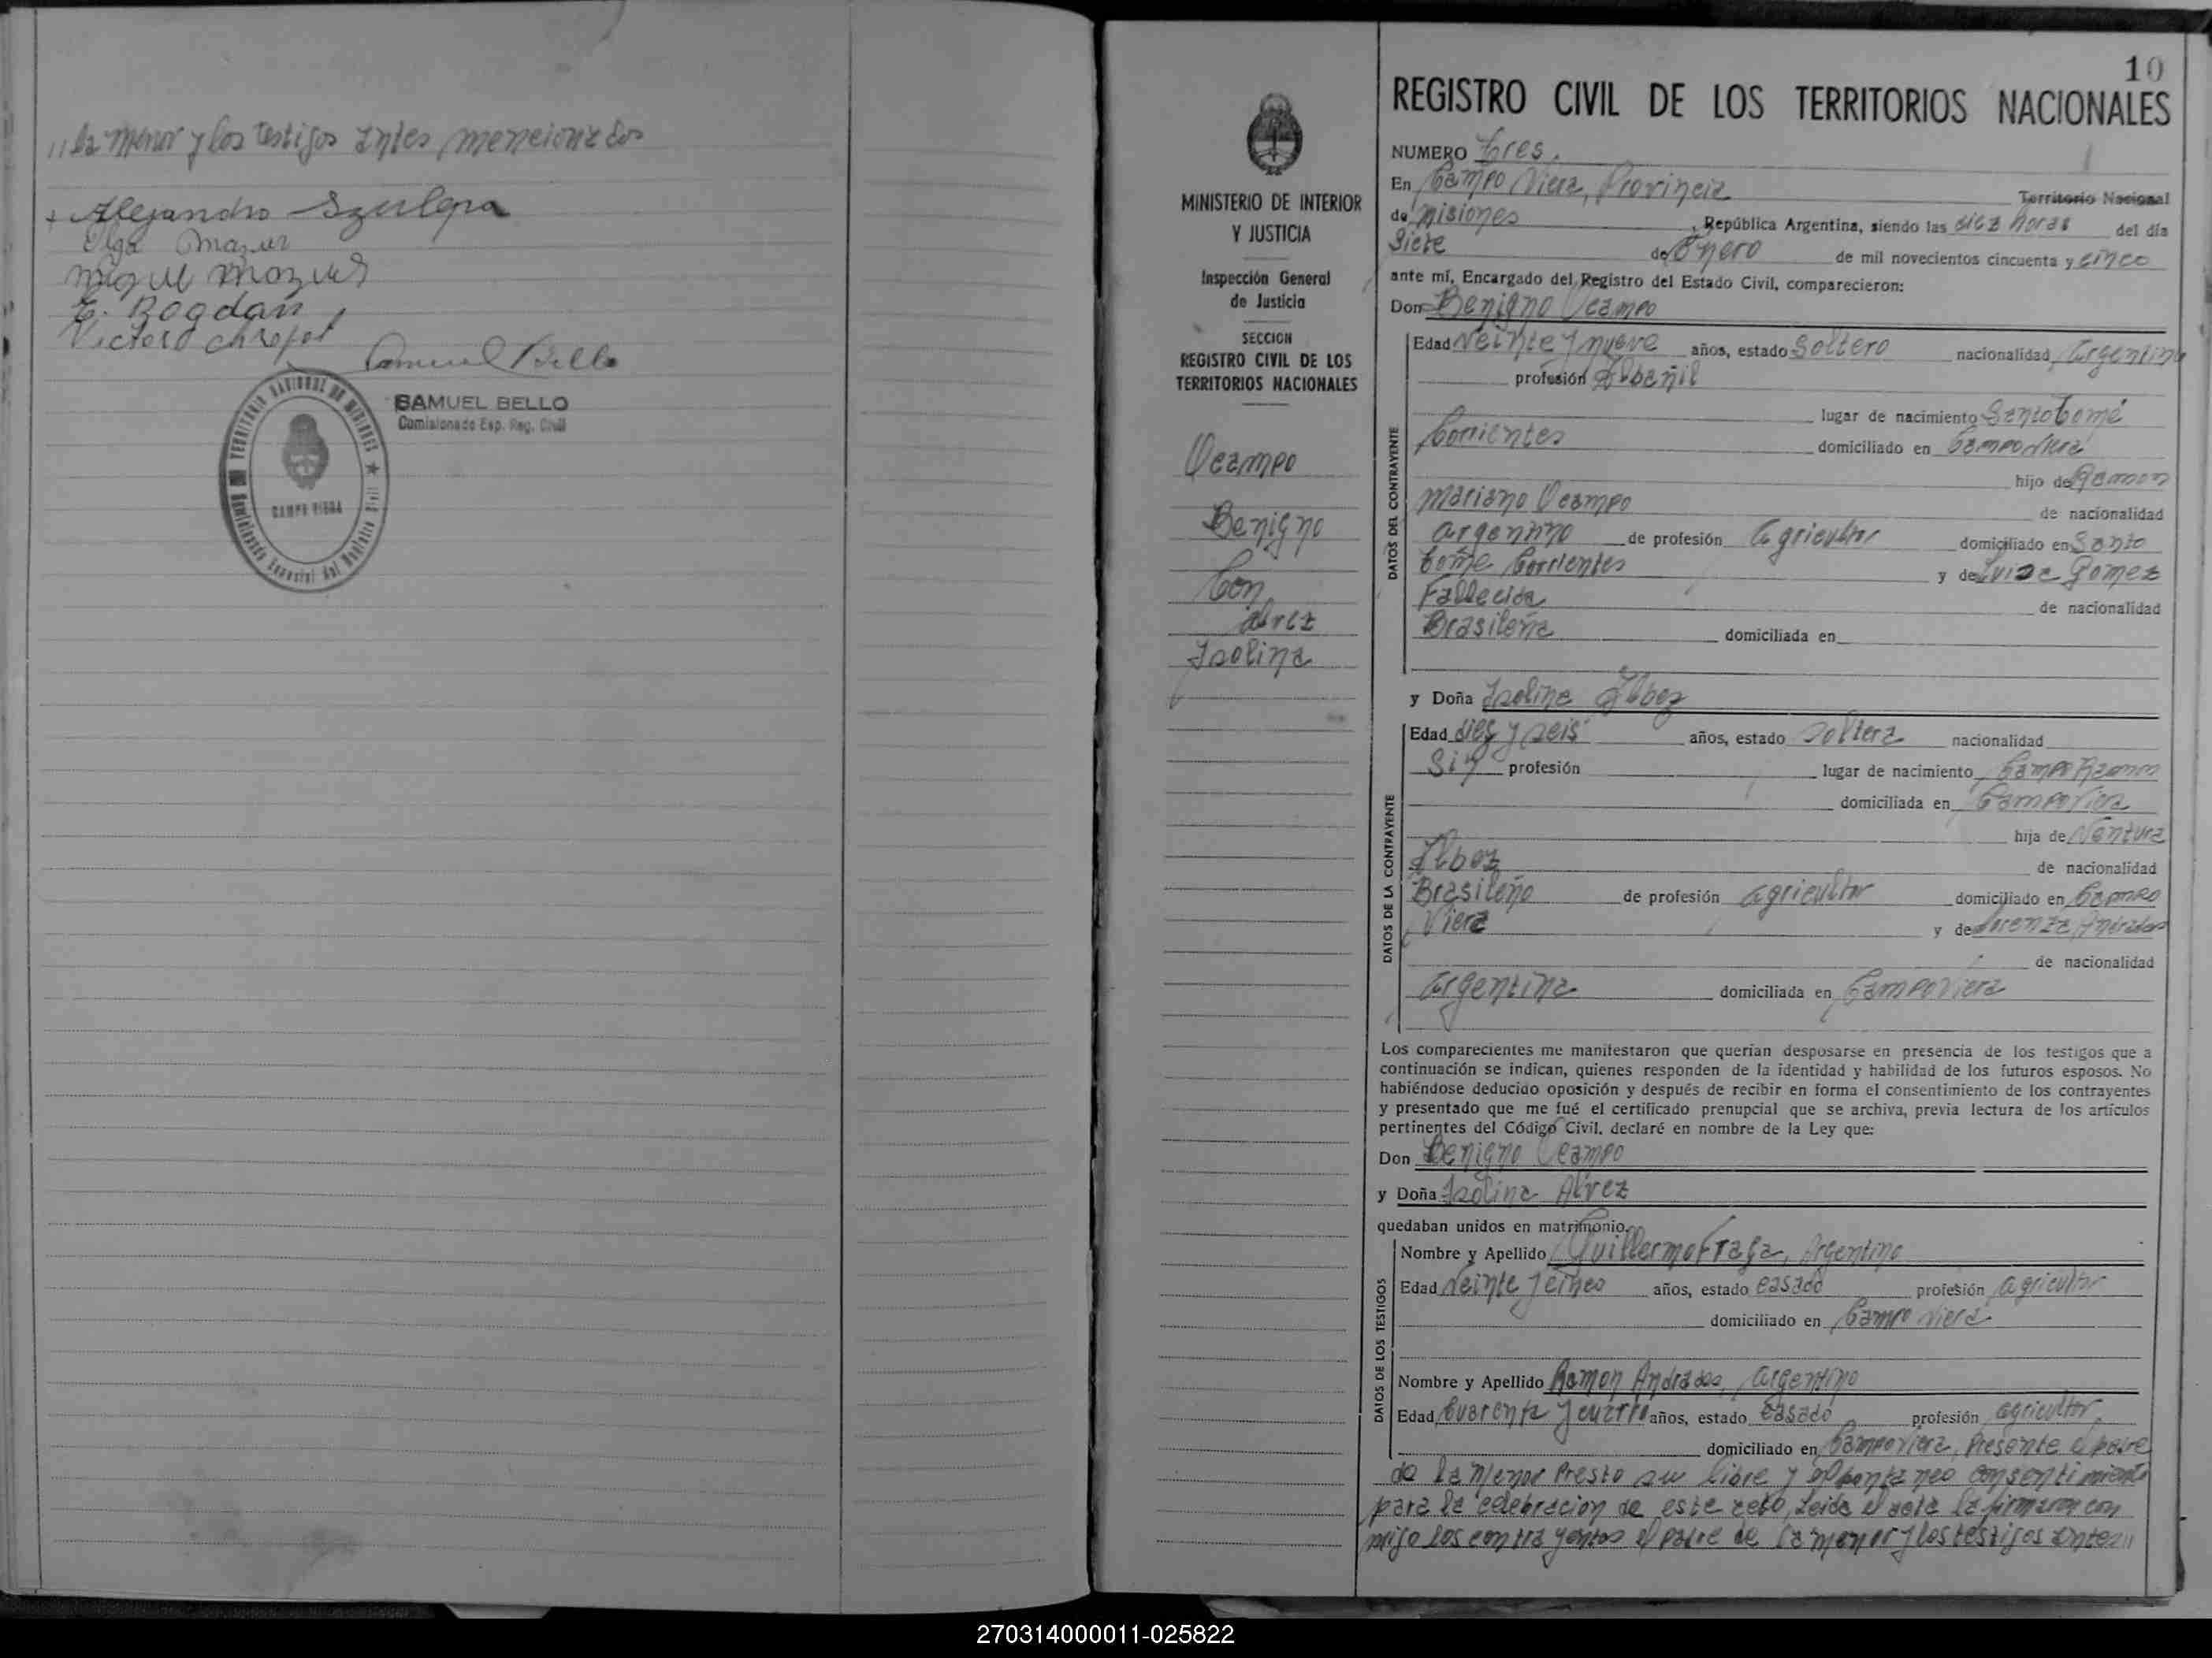 " la menor y los testigos antes mencionados
+ Alejandro Szulepa
Olga Mazur
Miguel Mazur
E. Bogdan
Victorio
Samuel Bello
SAMUEL BELLO
Comisionado Esp. Reg. Civil
TERRITORIO NACIONAL DE MISIONES
CAMPO VIERA
10
REGISTRO CIVIL DE LOS TERRITORIOS NACIONALES
MINISTERIO DE INTERIOR
Y JUSTICIA
Inspección General
de Justicia
SECCION
REGISTRO CIVIL DE LOS
TERRITORIOS NACIONALES
Ocampo
Benigno
Con
Alvez
Isolina
NUMERO Tres.
En Campo Viera, Provincia Territorio Nacional
de Misiones, República Argentina, siendo las diez horas del día
Siete de Enero de mil novecientos cincuenta y cinco
ante mí, Encargado del Registro del Estado Civil, comparecieron:
Don Benigno Ocampo
DATOS DEL CONTRAYENTE
Edad Veinte y nueve años, estado Soltero nacionalidad Argentina
profesión Albañil
lugar de nacimiento Santo Tomé
Corrientes domiciliado en Campo Viera
hijo de Ramon
Mariano Ocampo de nacionalidad
argentino de profesión agricultor domiciliado en Santo
Tome Corrientes y de Luisa Gomez
Fallecida de nacionalidad
Brasileña domiciliada en
y Doña Isolina Alvez
DATOS DE LA CONTRAYENTE
Edad dies y seis años, estado Soltera nacionalidad
Sin profesión lugar de nacimiento Campo Ramon
domiciliada en Campo Viera
hija de Ventura
Alvez de nacionalidad
Brasileño de profesión agricultor domiciliado en Campo
Viera y de Lorenza Andrades
de nacionalidad
argentina domiciliada en Campo Viera
Los comparecientes me manifestaron que querían desposarse en presencia de los testigos que a
continuación se indican, quienes responden de la identidad y habilidad de los futuros esposos. No
habiéndose deducido oposición y después de recibir en forma el consentimiento de los contrayentes
y presentado que me fué el certificado prenupcial que se archiva, previa lectura de los artículos
pertinentes del Código Civil, declaré en nombre de la Ley que:
Don Benigno Ocampo
y Doña Isolina Alvez
quedaban unidos en matrimonio.
DATOS DE LOS TESTIGOS
Nombre y Apellido Guillermo Fraga, Argentino
Edad Veinte y cinco años, estado casado profesión agricultor
domiciliado en Campo Viera
Nombre y Apellido Ramon Andrades, argentino
Edad Cuarenta y cuatro años, estado casado profesión agricultor
domiciliado en Campo Viera, Presente el padre
de la menor Presto su libre y espontaneo consentimiento
para la celebracion de este acto, Leida el acta la firmaron con
migo los contrayentes el padre de la menor y los testigos antes "
270314000011-025822